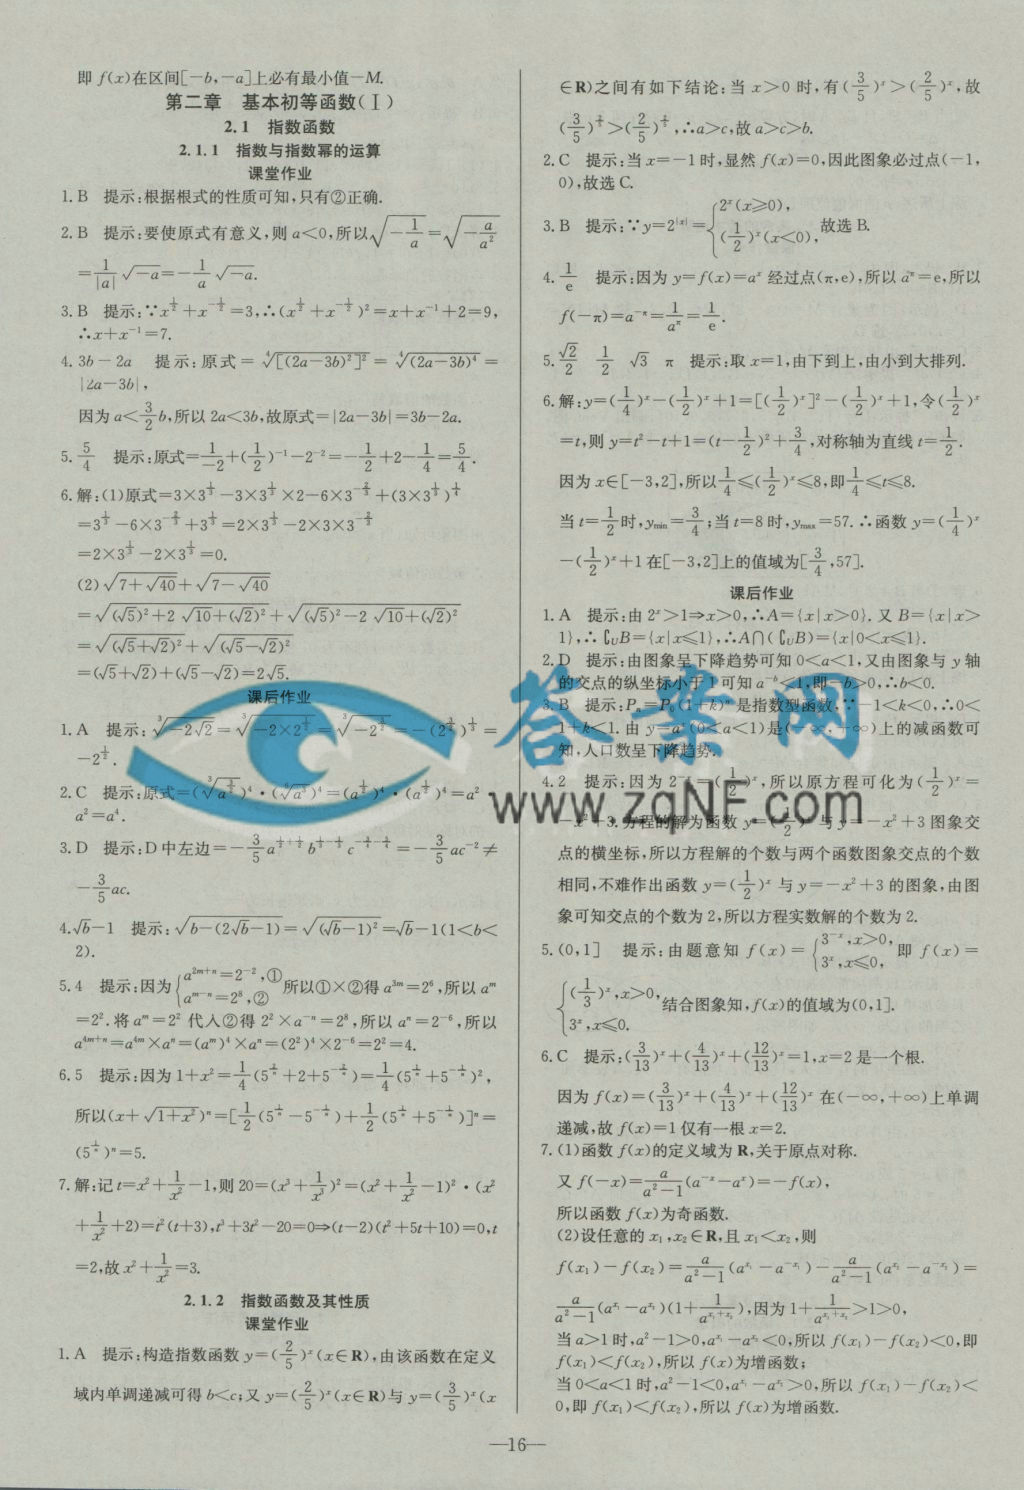 即 f(x)在区间[-b,-a]上必有最小值-M.
第二章　基本初等函数(Ⅰ)
2.1　指数函数
2.1.1　指数与指数幂的运算
课堂作业
1. B　提示:根据根式的性质可知,只有②正确.
2. B　提示:要使原式有意义,则 a<0,所以√(-1/a)=√(-a/a²)
=1/|a| √-a=-1/a √-a.
3. B　提示:∵x^(1/2)+x^(-1/2)=3,∴(x^(1/2)+x^(-1/2))²=x+x⁻¹+2=9,
∴x+x⁻¹=7.
4. 3b-2a　提示:原式=⁴√([(2a-3b)²]²)=⁴√((2a-3b)⁴)=
|2a-3b|,
因为 a<3/2 b,所以 2a<3b,故原式=|2a-3b|=3b-2a.
5. 5/4　提示:原式=1/(-2)+(1/2)⁻¹-2⁻²=-1/2+2-1/4=5/4.
6. 解:(1)原式=3×3^(1/3)-3×3^(1/3)×2-6×3^(-2/3)+(3×3^(1/3))^(1/4)
=3^(1/3)-6×3^(-2/3)+3^(1/3)=2×3^(1/3)-2×3×3^(-2/3)
=2×3^(1/3)-2×3^(1/3)=0.
(2)√(7+√40)+√(7-√40)
=√((√5)²+2√10+(√2)²)+√((√5)²-2√10+(√2)²)
=√((√5+√2)²)+√((√5-√2)²)
=(√5+√2)+(√5-√2)=2√5.
课后作业
1. A　提示:³√(-2√2)=³√(-2×2^(1/2))=³√(-2^(3/2))=-(2^(3/2))^(1/3)=
-2^(1/2).
2. C　提示:原式=(³√(a^(3/2)))⁴·(⁶√a³)⁴=(a^(1/2))⁴·(a^(1/2))⁴=a²·
a²=a⁴.
3. D　提示:D 中左边=-3/5 a^(1/2+1/2) b^(1/3-1/3) c^(-3/4-5/4)=-3/5 ac⁻²≠
-3/5 ac.
4. √b-1　提示:√(b-(2√b-1))=√((√b-1)²)=√b-1(1<b<
2).
5. 4　提示:因为{a^(2m+n)=2⁻²,① a^(m-n)=2⁸,② 所以①×②得 a^(3m)=2⁶,所以 a^m
=2². 将 a^m=2² 代入②得 2²×a^(-n)=2⁸,所以 a^n=2⁻⁶,所以
a^(4m+n)=a^(4m)×a^n=(a^m)⁴×a^n=(2²)⁴×2⁻⁶=2²=4.
6. 5　提示:因为 1+x²=1/4(5^(2/n)+2+5^(-2/n))=1/4(5^(1/n)+5^(-1/n))²,
所以(x+√(1+x²))^n=[1/2(5^(1/n)-5^(-1/n))+1/2(5^(1/n)+5^(-1/n))]^n=
(5^(1/n))^n=5.
7. 解:记 t=x²+1/x²-1,则 20=(x³+1/x³)²=(x²+1/x²-1)²·(x²
+1/x²+2)=t²(t+3),t³+3t²-20=0⇒(t-2)(t²+5t+10)=0,t
=2,故 x²+1/x²=3.
2.1.2　指数函数及其性质
课堂作业
1. A　提示:构造指数函数 y=(2/5)^x(x∈R),由该函数在定义
域内单调递减可得 b<c;又 y=(2/5)^x(x∈R)与 y=(3/5)^x(x
∈R)之间有如下结论:当 x>0 时,有(3/5)^x>(2/5)^x,故
(3/5)^(2/5)>(2/5)^(2/5),∴a>c,故 a>c>b.
2. C　提示:当 x=-1 时,显然 f(x)=0,因此图象必过点(-1,
0),故选 C.
3. B　提示:∵y=2^|x|={2^x(x≥0), (1/2)^x(x<0), 故选 B.
4. 1/e　提示:因为 y=f(x)=a^x 经过点(π,e),所以 a^π=e,所以
f(-π)=a^(-π)=1/a^π=1/e.
5. √2/2　1/2　√3　π　提示:取 x=1,由下到上,由小到大排列.
6. 解:y=(1/4)^x-(1/2)^x+1=[(1/2)^x]²-(1/2)^x+1,令(1/2)^x
=t,则 y=t²-t+1=(t-1/2)²+3/4,对称轴为直线 t=1/2.
因为 x∈[-3,2],所以 1/4≤(1/2)^x≤8,即 1/4≤t≤8.
当 t=1/2 时,y_min=3/4;当 t=8 时,y_max=57. ∴函数 y=(1/4)^x
-(1/2)^x+1 在[-3,2]上的值域为[3/4,57].
课后作业
1. A　提示:由 2^x>1⇒x>0,∴A={x|x>0}. 又 B={x|x>
1},∴∁UB={x|x≤1},∴A∩(∁UB)={x|0<x≤1}.
2. D　提示:由图象呈下降趋势可知 0<a<1,又由图象与 y 轴
的交点的纵坐标小于 1 可知 a^(-b)<1,即-b>0,∴b<0.
3. B　提示:Pn=P0(1+k)^n 是指数型函数,∵-1<k<0,∴0<
1+k<1. 由 y=a^x(0<a<1)是(-∞,+∞)上的减函数可
知,人口数呈下降趋势.
4. 2　提示:因为 2^(-x)=(1/2)^x,所以原方程可化为(1/2)^x=
-x²+3. 方程的解为函数 y=(1/2)^x 与 y=-x²+3 图象交
点的横坐标,所以方程解的个数与两个函数图象交点的个数
相同,不难作出函数 y=(1/2)^x 与 y=-x²+3 的图象,由图
象可知交点的个数为 2,所以方程实数解的个数为 2.
5. (0,1]　提示:由题意知 f(x)={3^(-x),x>0, 3^x,x≤0, 即 f(x)=
{(1/3)^x,x>0, 3^x,x≤0. 结合图象知,f(x)的值域为(0,1].
6. C　提示:(3/13)^x+(4/13)^x+(12/13)^x=1,x=2 是一个根.
因为 f(x)=(3/13)^x+(4/13)^x+(12/13)^x 在(-∞,+∞)上单调
递减,故 f(x)=1 仅有一根 x=2.
7. (1)函数 f(x)的定义域为 R,关于原点对称.
又 f(-x)=a/(a²-1)(a^(-x)-a^x)=-f(x),
所以函数 f(x)为奇函数.
(2)设任意的 x₁,x₂∈R,且 x₁<x₂,则
f(x₁)-f(x₂)=a/(a²-1)(a^(x₁)-a^(-x₁))-a/(a²-1)(a^(x₂)-a^(-x₂))=
a/(a²-1)(a^(x₁)-a^(x₂))(1+1/a^(x₁+x₂)),因为 1+1/a^(x₁+x₂)>1>0,
当 a>1 时,a²-1>0,a^(x₁)-a^(x₂)<0,所以 f(x₁)-f(x₂)<0,即
f(x₁)<f(x₂),所以 f(x)为增函数;
当 0<a<1 时,a²-1<0,a^(x₁)-a^(x₂)>0,所以 f(x₁)-f(x₂)<
0,即 f(x₁)<f(x₂),所以 f(x)为增函数.
—16—
答案网
www.zqNF.com